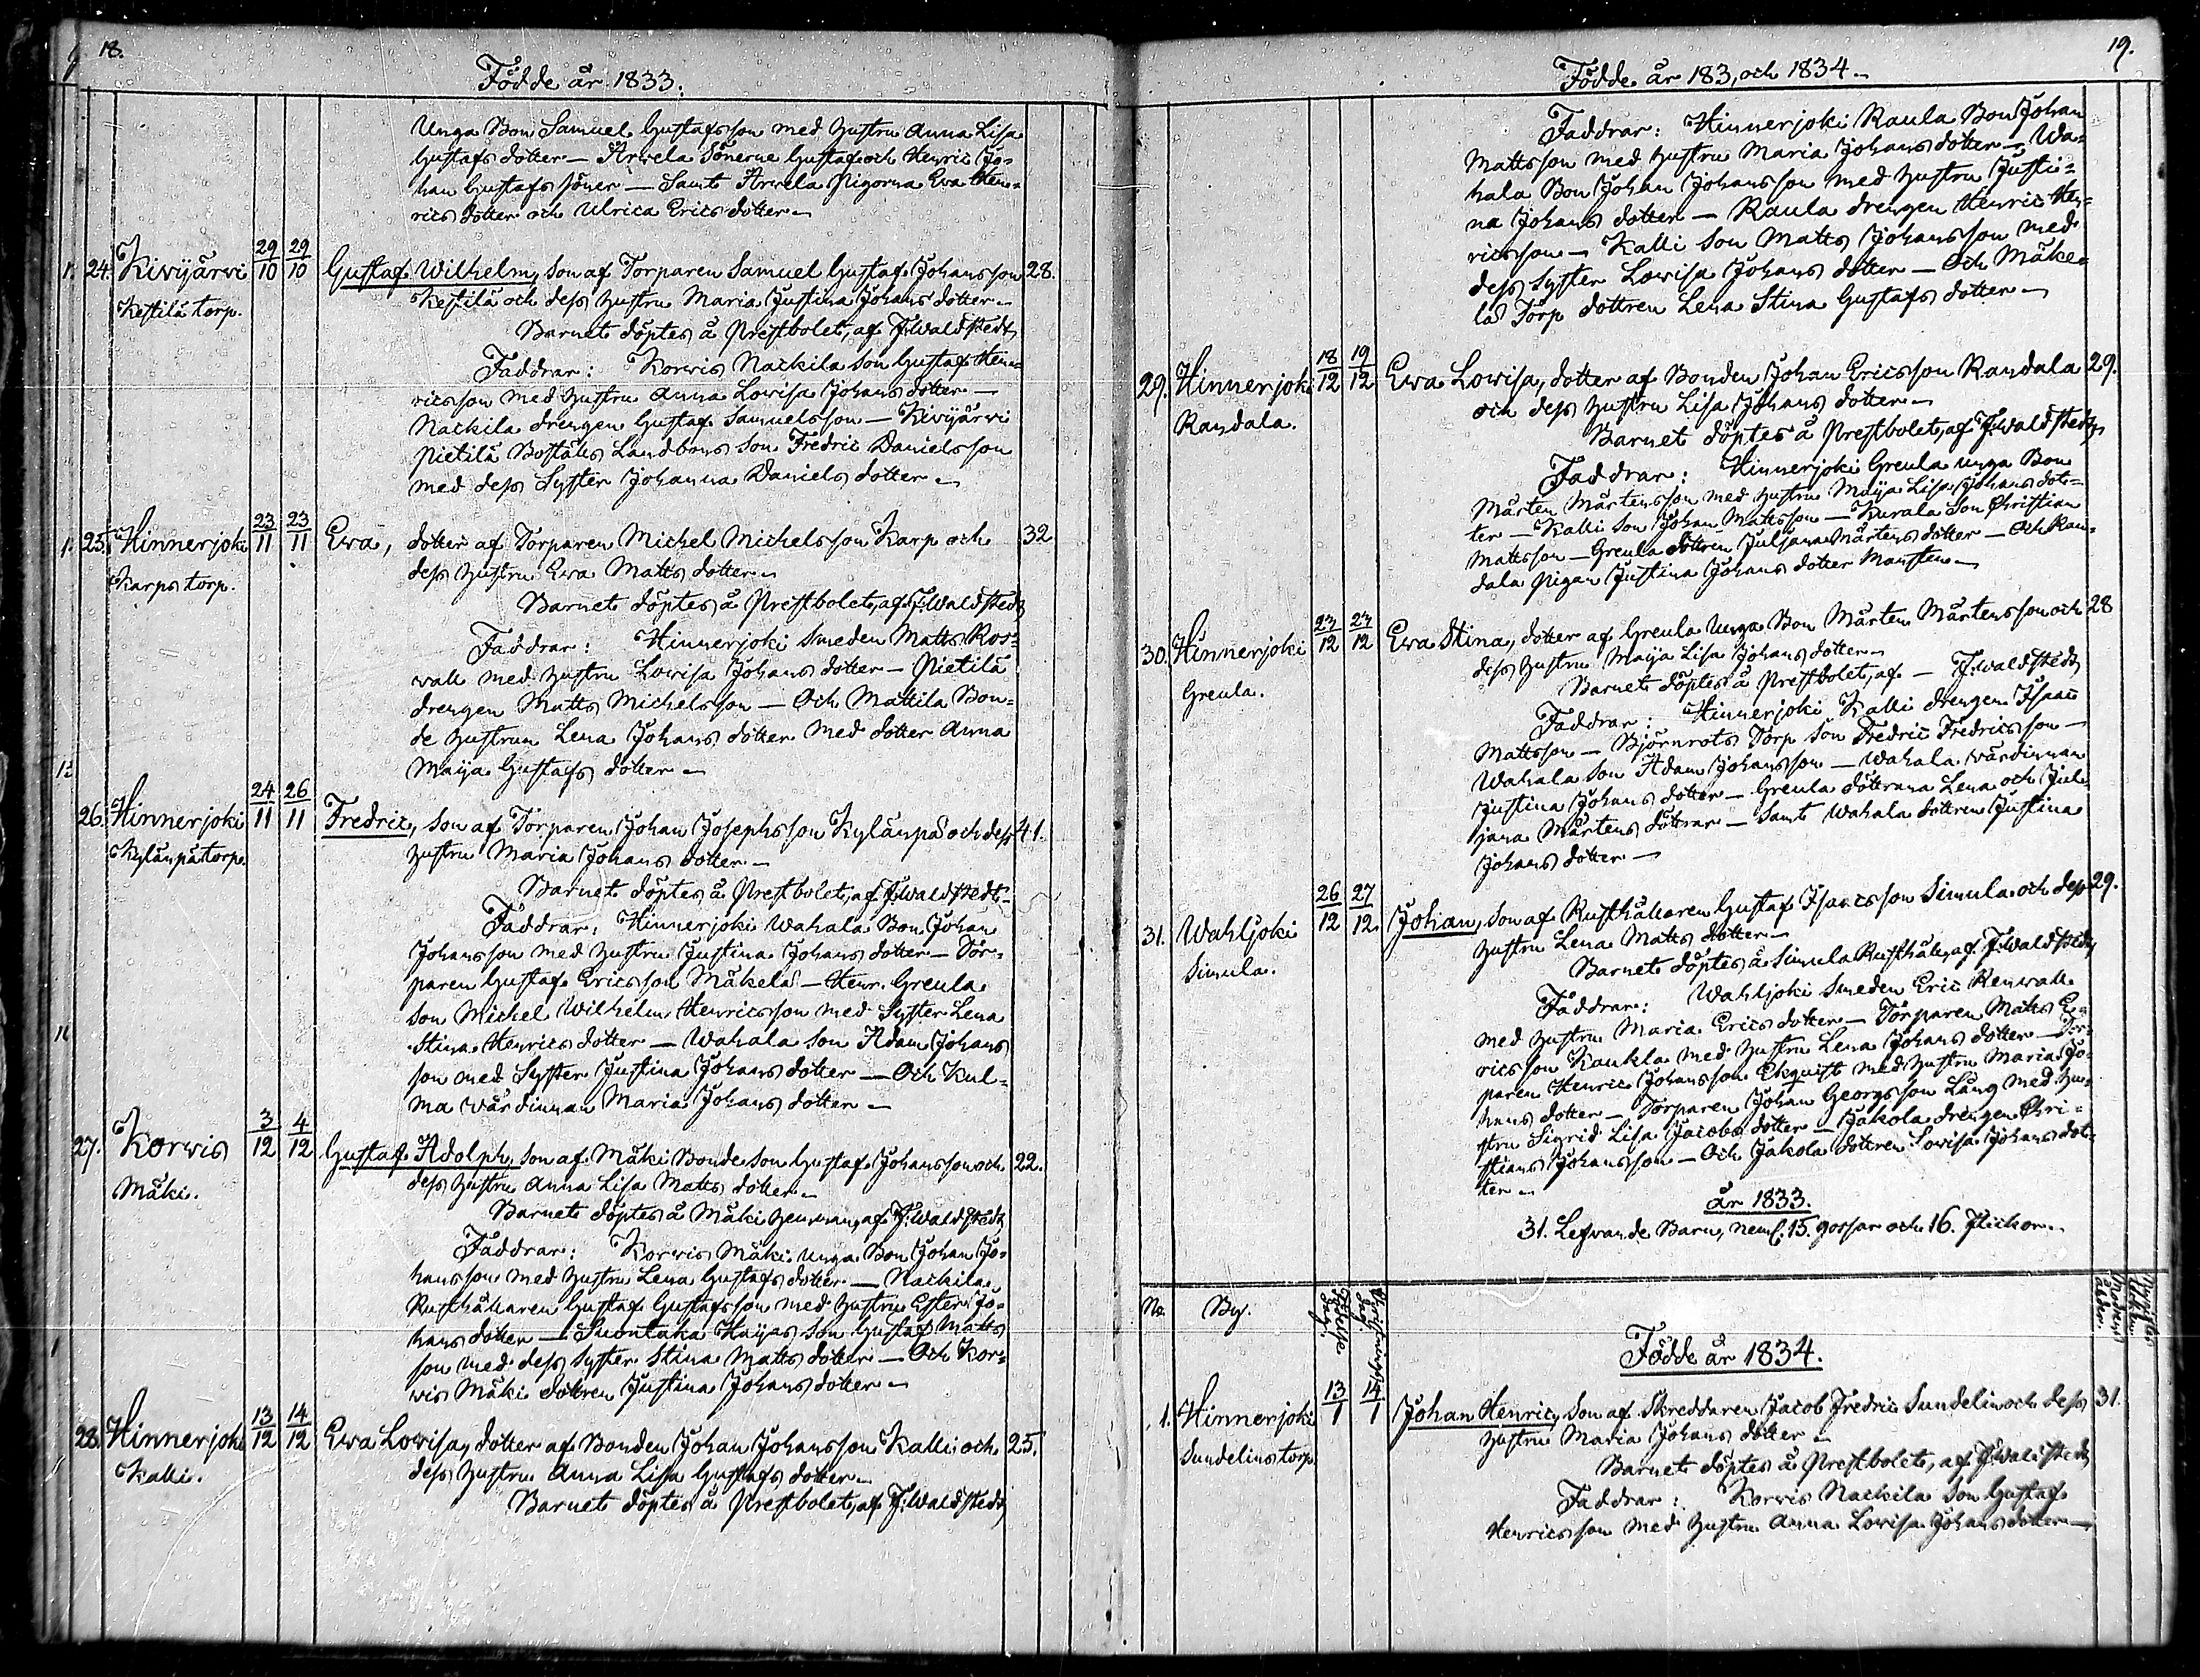 18.
Födde år 1833.
Unga Bon Samuel Gustafsson med hustru Anna Lisa
Gustafs dotter — Arwela Sönerne Gustaf och Henric Jo-
han Gustafs söner — Samt Arwela Pigorna Eva Hen-
rics dotter och Ulrica Erics dotter —
24. Kivijärvi 29/10 29/10 Gustaf Wilhelm, son af Torparen Samuel Gustaf Johansson 28.
Kestilä torp. Kestilä och dess hustru Maria Justina Johans dotter —
Barnet döptes å Prestbolet, af F: Waldstedt
Faddrar: Korvis Nackila son Gustaf Hen-
ricsson med hustru Anna Lovisa Johans dotter —
Nackila drengen Gustaf Samuelsson — Kivijärvi
Pietilä Boställs Landbons son Fredric Danielsson
med dess Syster Johanna Daniels dotter —
25. Hinnerjoki 23/11 23/11 Eva, dotter af Torparen Michel Michelsson Karp och 32
Karps torp. dess hustru Eva Matts dotter —
Barnet döptes å Prestbolet, af F: Waldstedt
Faddrar: Hinnerjoki Smeden Matts Ros-
wall med hustru Lovisa Johans dotter — Pietilä
drengen Matts Michelsson — Och Mattila Bon-
de hustrun Lena Johans dotter med dotter Anna
Maija Gustafs dotter —
26. Hinnerjoki 24/11 26/11 Fredric, son af Torparen Johan Josephsson Kylänpä och dess 41.
Kylänpä torp. hustru Maria Johans dotter —
Barnet döptes å Prestbolet, af F: Waldstedt
Faddrar: Hinnerjoki Wahala Bon Johan
Johansson med hustru Justina Johans dotter — Tor-
paren Gustaf Ericsson Mäkelä — Henr. Greula
son Michel Wilhelm Henricsson med Syster Lena
Stina Henrics dotter — Wahala Son Adam Johans
son med Syster Justina Johans dotter — Och Kul-
ma värdinnan Maria Johans dotter —
27. Korvis 3/12 4/12 Gustaf Adolph, son af Mäki Bonde son Gustaf Johansson och 22.
Mäki. dess hustru Anna Lisa Matts dotter —
Barnet döptes å Mäki hemman, af F: Waldstedt
Faddrar: Korvis Mäki unga Bon Johan Jo-
hansson med hustru Lena Gustafs dotter — Nackila
Rusthållaren Gustaf Gustafsson med hustru Ester Jo-
hans dotter — Suontaka Haijas son Gustaf Matts
son med dess Syster Stina Matts dotter — Och Kor-
vis Mäki dottren Justina Johans dotter —
28. Hinnerjoki 13/12 14/12 Eva Lovisa, dotter af Bonden Johan Johansson Kalli och 25.
Kalli. dess hustru Anna Lisa Gustafs dotter —
Barnet döptes å Prestbolet, af F: Waldstedt
19.
Födde år 183, och 1834 —
Faddrar: Hinnerjoki Raula Bon Johan
Mattsson med hustru Maria Johans dotter — Wa-
hala Bon Johan Johansson med hustru Justi-
na Johans dotter — Raula drengen Henric Hen-
ricsson — Kalli Son Matts Johansson med
dess Syster Lovisa Johans dotter — Och Mäke-
lä Torp dottren Lena Stina Gustafs dotter —
29. Hinnerjoki 18/12 19/12 Eva Lovisa, dotter af Bonden Johan Ericsson Randala 29.
Randala. och dess hustru Lisa Johans dotter —
Barnet döptes å Prestbolet, af F: Waldstedt
Faddrar: Hinnerjoki Greula unga Bon
Mårten Mårtensson med hustru Maija Lisa Johans dot-
ter — Kalli son Johan Mattsson — Kurala Son Christian
Mattsson — Greula dottren Juljana Mårtens dotter — Och Ran-
dala Pigan Justina Johans dotter Mansten —
30. Hinnerjoki 23/12 23/12 Eva Stina, dotter af Greula Unga Bon Mårten Mårtensson och 28
Greula. dess hustru Maija Lisa Johans dotter —
Barnet döptes å Prestbolet, af — F: Waldstedt
Faddrar: Hinnerjoki Kalli drengen Isaac
Mattsson — Björnrots Torp son Fredric Fredricsson —
Wahala son Adam Johansson — Wahala värdinnan
Justina Johans dotter — Greula döttrarna Lena och Jul-
jana Mårtens döttrar — Samt Wahala dottren Justina
Johans dotter —
31. Wahljoki 26/12 27/12. Johan, son af Rusthållaren Gustaf Isaacsson Simula och dess 29.
Simula. hustru Lena Matts dotter —
Barnet döptes å Simula Rusthåll, af F: Waldstedt
Faddrar: Wahljoki Smeden Eric Renwall
med hustru Maria Erics dotter — Torparen Matts E-
ricsson Kaukla med hustru Lena Johans dotter — Tor-
paren Henric Johansson Ekquist med hustru Maria Jo-
hans dotter — Torparen Johan Georgsson Lång med hu-
stru Sigrid Lisa Jacobs dotter — Jakola drengen Chri-
stians Johansson — Och Jakola dottren Lovisa Johans dot-
ter —
år 1833.
31. Lefvande Barn, neml. 15. gossar och 16. Flickor.
No. By. Födelse dag. Christnings dag. Modrens ålder.
Födde år 1834.
1. Hinnerjoki 13/1 14/1 Johan Henric, Son af Skreddaren Jacob Fredric Sundelin och dess 31.
Sundelins torp hustru Maria Johans dotter —
Barnet döptes å Prestbolet, af F: Waldstedt
Faddrar: Korvis Nackila son Gustaf
Henricsson med hustru Anna Lovisa Johans dotter —